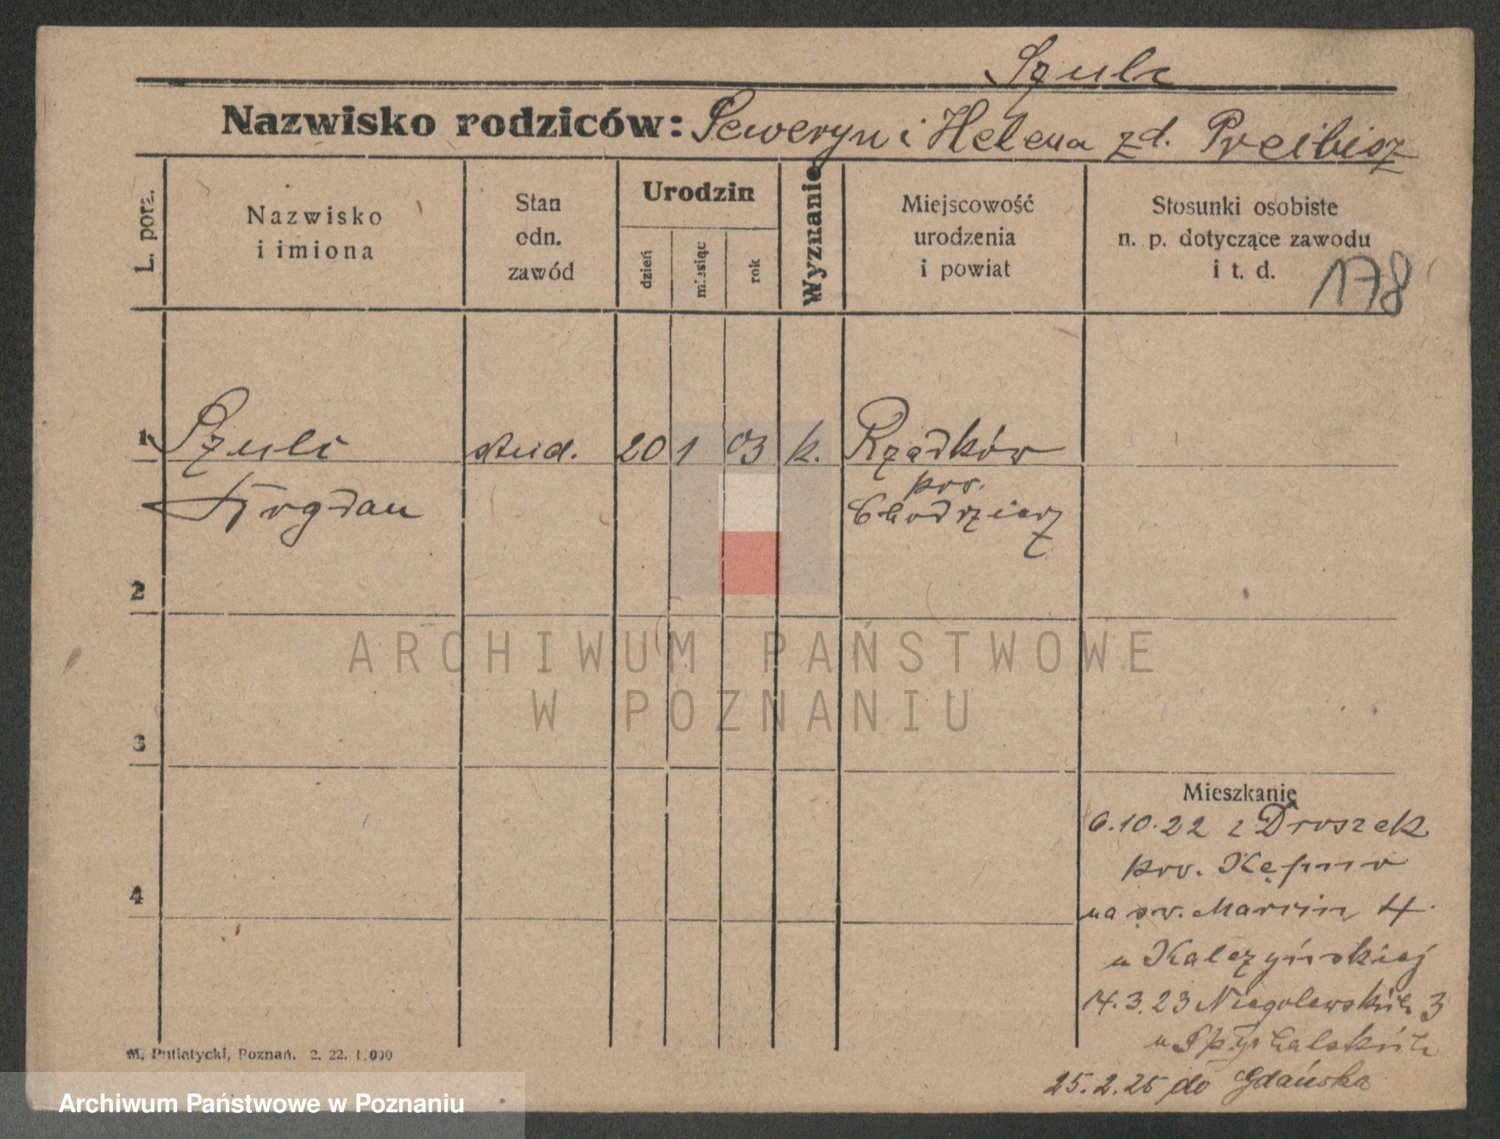 Szulc
Nazwisko rodziców: Seweryn i Helena zd. Preibisz
L. porz.
Nazwisko
i imiona
Stan
odn.
zawód
Urodzin
dzień
miesiąc
rok
Wyznanie
Miejscowość
urodzenia
i powiat
Stosunki osobiste
n. p. dotyczące zawodu
i t. d.
178
1 Szulc stud. 20 1 03 k. Rządków
Bogdan pow.
Chodzież
2
ARCHIWUM PAŃSTWOWE
W POZNANIU
3
Mieszkanie
6.10.22 z Droszek
pow. Kępno
4
na św. Marcin 4
u Kalczyńskiej
14.3.23 Niegolewskich 3
u Spychalskich
25.2.25 do Gdańska
M. Putiatycki, Poznań. 2. 22. 1.000
Archiwum Państwowe w Poznaniu